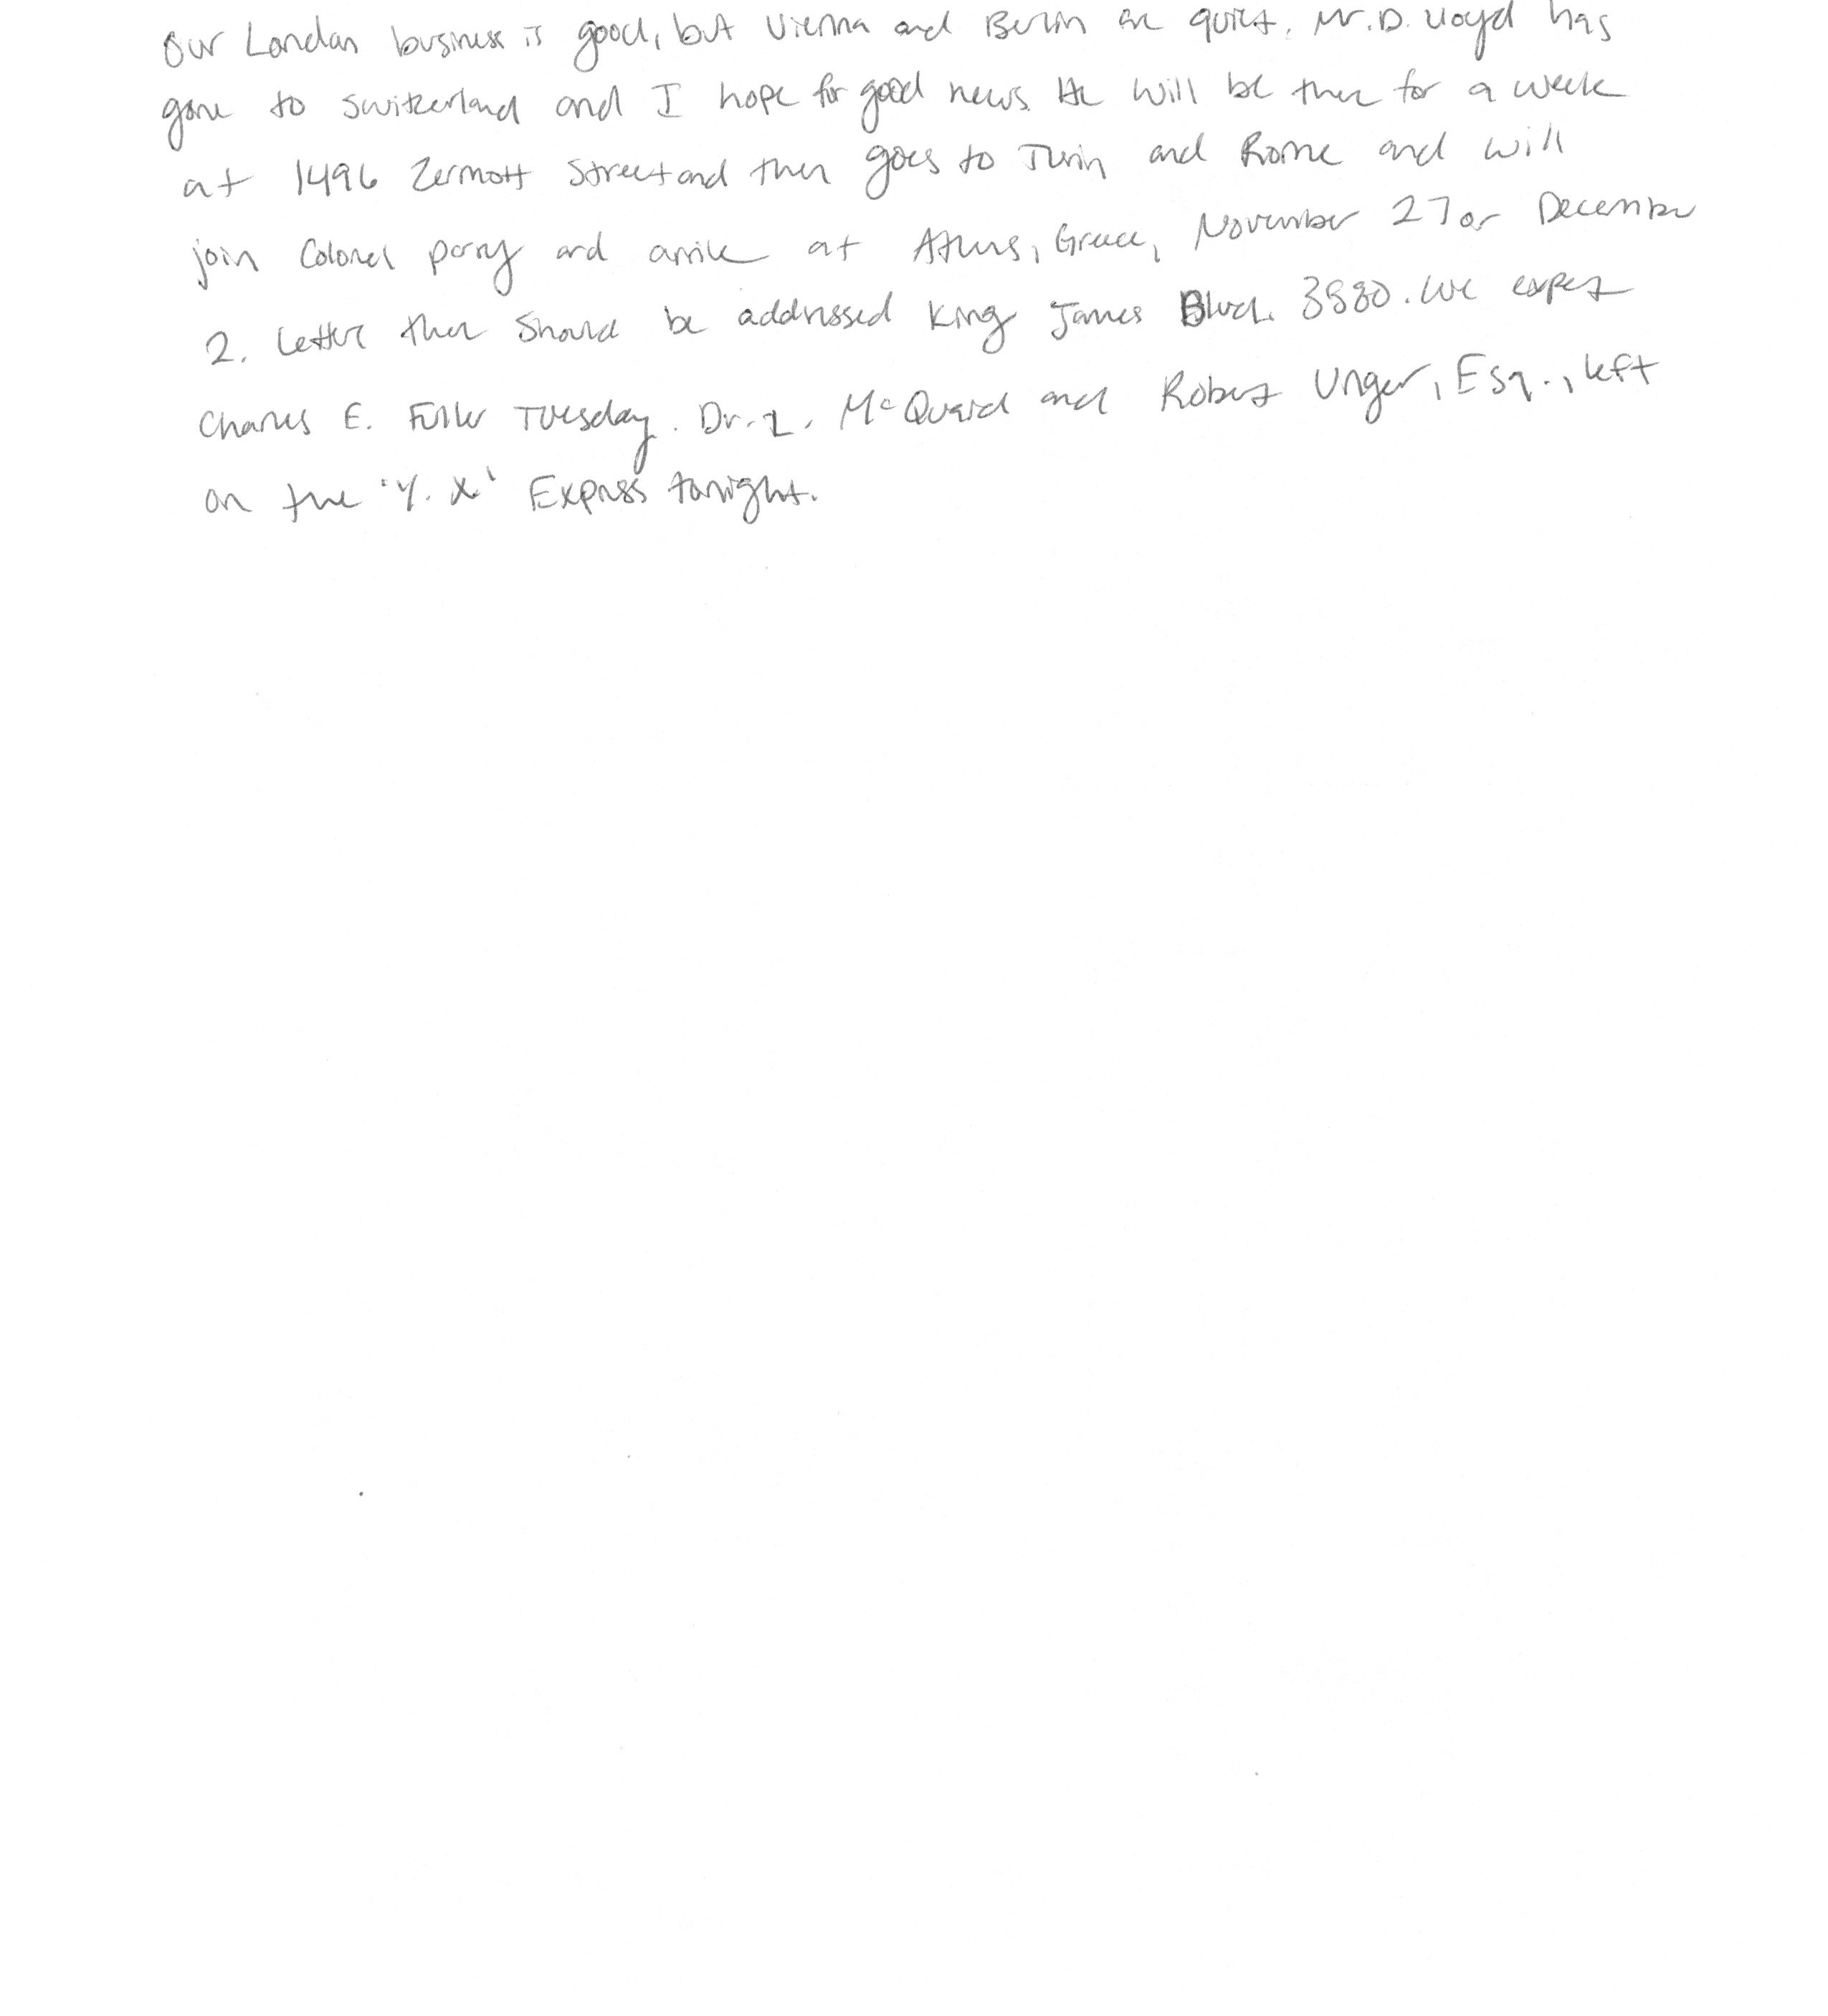 Our London business is good, but Vienna and Berlin are quiet. Mr. D. Lloyd has
gone to Switzerland and I hope for good news. He will be there for a week
at 1496 Zermott Street and then goes to Turin and Rome and will
join Colonel parry and arrive at Athens, Greece, November 27 or December
2. Letter there Should be addressed King James Blvd. 3880. We expect
Charles E. Fuller Tuesday. Dr. L. McQuaid and Robert Unger, Esq., left
on the 'Y. X.' Express tonight.